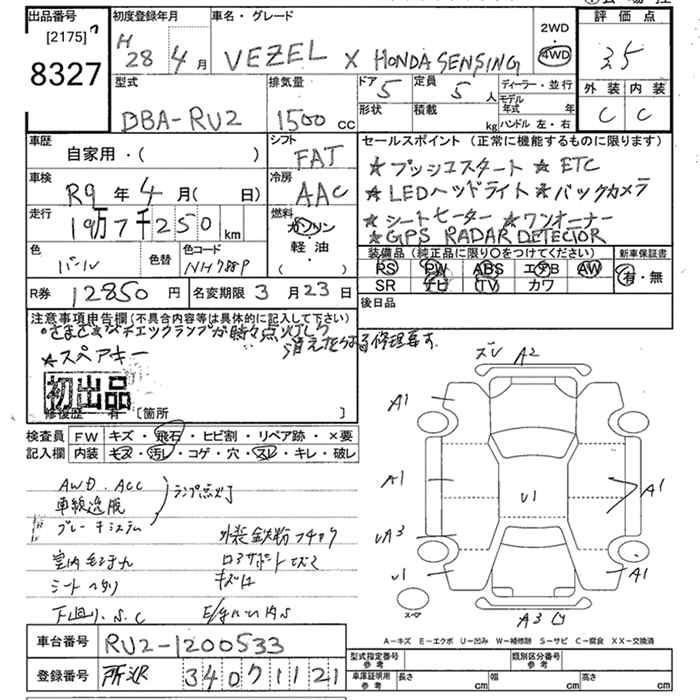 出品番号
[2175]
8327
初度登録年月
H 28年 4月
車名・グレード
VEZEL X HONDA SENSING
2WD
・
4WD
評価点
3.5
外装 内装
C C
型式
DBA-RU2
排気量
1500 cc
ドア 5
定員 5人
形状
積載 kg
ディーラー・並行
モデル年式 年
ハンドル 左・右
車歴
自家用・( )
シフト
FAT
車検
R9年 4月( 日)
冷房
AAC
走行
19万7千250 km
燃料
ガソリン
・
軽油
・
( )
色
パール
色替
色コード
NH788P
セールスポイント (正常に機能するものに限ります)
★プッシュスタート ★ETC
★LEDヘッドライト ★バックカメラ
★シートヒーター ★ワンオーナー
★GPS RADAR DETECTOR
装備品 (純正品に限り○をつけてください)
新車保証書
PS PW ABS エアB AW
SR ナビ TV カワ
有・無
R券 12850円
名変期限 3月23日
後日品
注意事項申告欄(不具合内容等は具体的に記入して下さい)
さまざまなチェックランプが時々点灯したり
消えたりする 修理要す.
★スペアキー
初出品
修復歴 有 [箇所 ]
検査員記入欄
FW キズ・飛石・ヒビ割・リペア跡・×要
内装 キズ・汚レ・コゲ・穴・スレ・キレ・破レ
AWD. ACC
車線逸脱
ブレーキシステム
ランプ点灯
外装鉄粉
シートヘタリ
キズ
下廻り.S.C
ズレ A2
A1
A1
U1
A1
UA3
U1
A1
A3
スペア
A-キズ E-エクボ U-凹み W-補修跡 S-サビ C-腐食 XX-交換済
車台番号 RU2-1200533
登録番号 所沢 340 71121
型式指定番号 参考
類別区分番号 参考
車庫証明用 参考
長さ cm
幅 cm
高さ cm